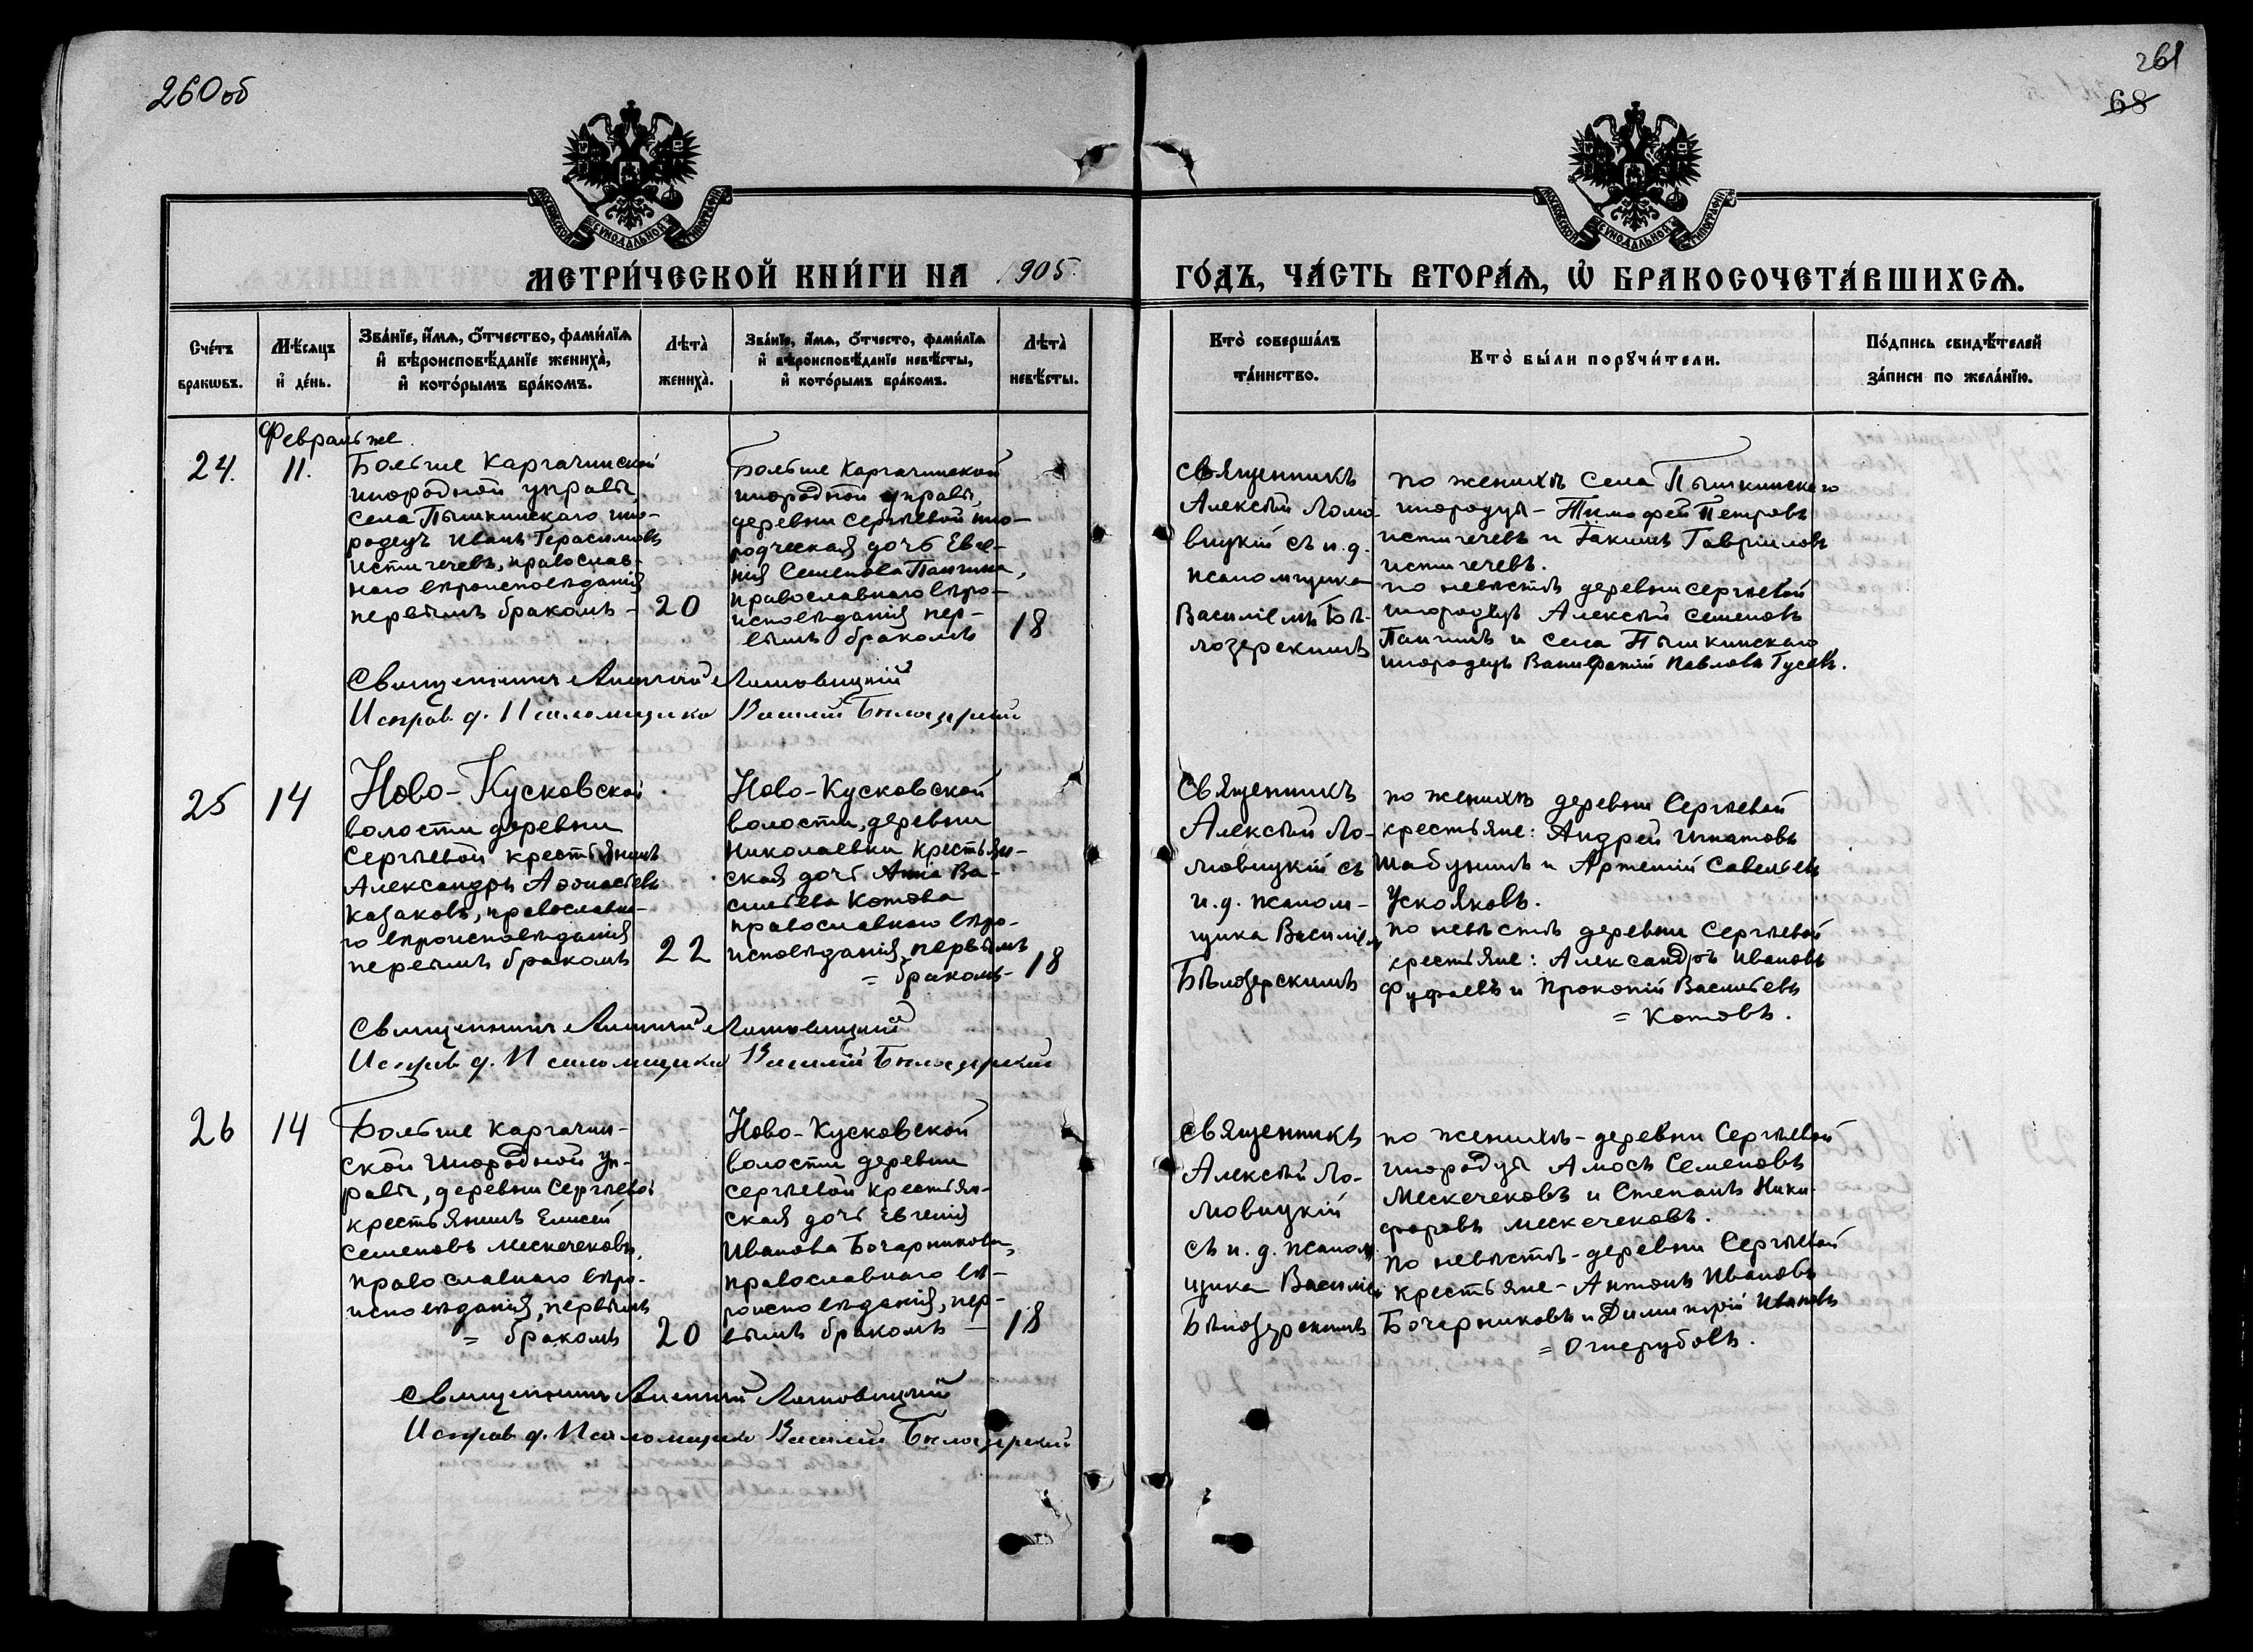 260об
261
68
МОСКОВСКОЙ СѴНОДАЛЬНОЙ ТИПОГРАФІИ
МОСКОВСКОЙ СѴНОДАЛЬНОЙ ТИПОГРАФІИ
МЕТРИ́ЧЕСКОЙ КНИ́ГИ НА 1905.
ГО́ДЪ, ЧА́СТЬ ВТОРА́Ѧ, Ѡ҆ БРАКОСОЧЕТА́ВШИХСѦ.
Сче́тъ
бракѡвъ.
Мѣ́сяцъ
и҆ де́нь.
Зва́нїе, и҆́мѧ, ѻ҆́тчество, фами́лїѧ
и҆ вѣроисповѣ́данїе жениха̀,
и҆ кото́рымъ бра́комъ.
Лѣта̀
жениха̀.
Зва́нїе, и҆́мѧ, ѻ҆́тчесто, фами́лїѧ
и҆ вѣроисповѣ́данїе невѣ́сты,
и҆ кото́рымъ бра́комъ.
Лѣта̀
невѣ́сты.
Кто̀ соверша́лъ
та́инство.
Кто̀ бы́ли порꙋчи́тели.
По́дпись свидѣ́телей
за́писи по жела́нїю.
Февраль же
24.
11.
Больше Каргачинской
инородной управы,
села Пышкинскаго ино-
родецъ Иванъ Герасимовъ
Истигечевъ, православ-
наго вѣроисповѣданія
первымъ бракомъ -
20
Больше Каргачинской
инородной управы,
деревни Сергѣевой ино-
родческая дочь Евге-
нія Семенова Пангина,
православнаго вѣро-
исповѣданія пер-
вымъ бракомъ
18
Священникъ
Алексѣй Ломо-
вицкій съ и.д.
псаломщика
Василіемъ Бѣ-
лозерскимъ
по женихѣ села Пышкинскаго
инородцы - Тимофей Петровъ
Истигечевъ и Іакимъ Гавріиловъ
Истигечевъ.
по невѣстѣ деревни Сергѣевой
инородецъ Алексѣй Семеновъ
Пангинъ и села Пышкинскаго
инородецъ Вонифатій Павловъ Гусевъ.
Священникъ Алексій Ломовицкій
Исправ. д. Псаломщика Василій Бѣлозерскій
25
14
Ново-Кусковской
волости деревни
Сергѣевой крестьянинъ
Александръ Аѳонасьевъ
Казаковъ, православна-
го вѣроисповѣданія
первымъ бракомъ
22
Ново-Кусковской
волости, деревни
Николаевки крестьян-
ская дочь Анна Ва-
сильева Котова
православнаго вѣро-
исповѣданія, первымъ
= бракомъ -
18
Священникъ
Алексѣй Ло-
мовицкій съ
и.д. псалом-
щика Василіемъ
Бѣлозерскимъ
по женихѣ деревни Сергѣевой
крестьяне: Андрей Игнатовъ
Шабунинъ и Артемій Савельевъ
Усколковъ.
по невѣстѣ деревни Сергѣевой
крестьяне: Александръ Ивановъ
Фуфаевъ и Прокопій Васильевъ
= Котовъ.
Священникъ Алексій Ломовицкій
Исправ. д. Псаломщика Василій Бѣлозерскій
26
14
Больше Каргачин-
ской Инородной Уп-
равы, деревни Сергѣевой
крестьянинъ Елисей
Семеновъ Мескечековъ,
православнаго вѣро-
исповѣданія, первымъ
= бракомъ
20
Ново-Кусковской
волости деревни
Сергѣевой крестьян-
ская дочь Евгенія
Иванова Бочарникова,
православнаго вѣ-
роисповѣданія, пер-
вымъ бракомъ -
18
Священникъ
Алексѣй Ло-
мовицкій
съ и. д. псалом-
щика Василіемъ
Бѣлозерскимъ
по женихѣ - деревни Сергѣевой
инородцы Амосъ Семеновъ
Мескечековъ и Степанъ Ники-
форовъ Мескечековъ.
по невѣстѣ - деревни Сергѣевой
крестьяне - Антонъ Ивановъ
Бочарниковъ и Димитрій Ивановъ
= Огнерубовъ.
Священникъ Алексій Ломовицкій
Исправ. д. Псаломщика Василій Бѣлозерскій